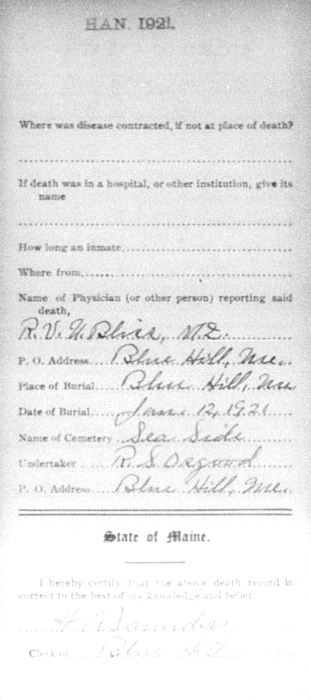 JAN. 1921.
Where was disease contracted, if not at place of death?
If death was in a hospital, or other institution, give its
name
How long an inmate
Where from
Name of Physician (or other person) reporting said
death,
R. V. N. Bliss, M.D.
P. O. Address Blue Hill, Me.
Place of Burial Blue Hill, Me
Date of Burial Jan. 12, 1921
Name of Cemetery Sea Side
Undertaker R. S. Osgood
P. O. Address Blue Hill, Me.
State of Maine.
I hereby certify that the above death record is
correct to the best of my knowledge and belief.
Saunders
Clerk of Blue Hill